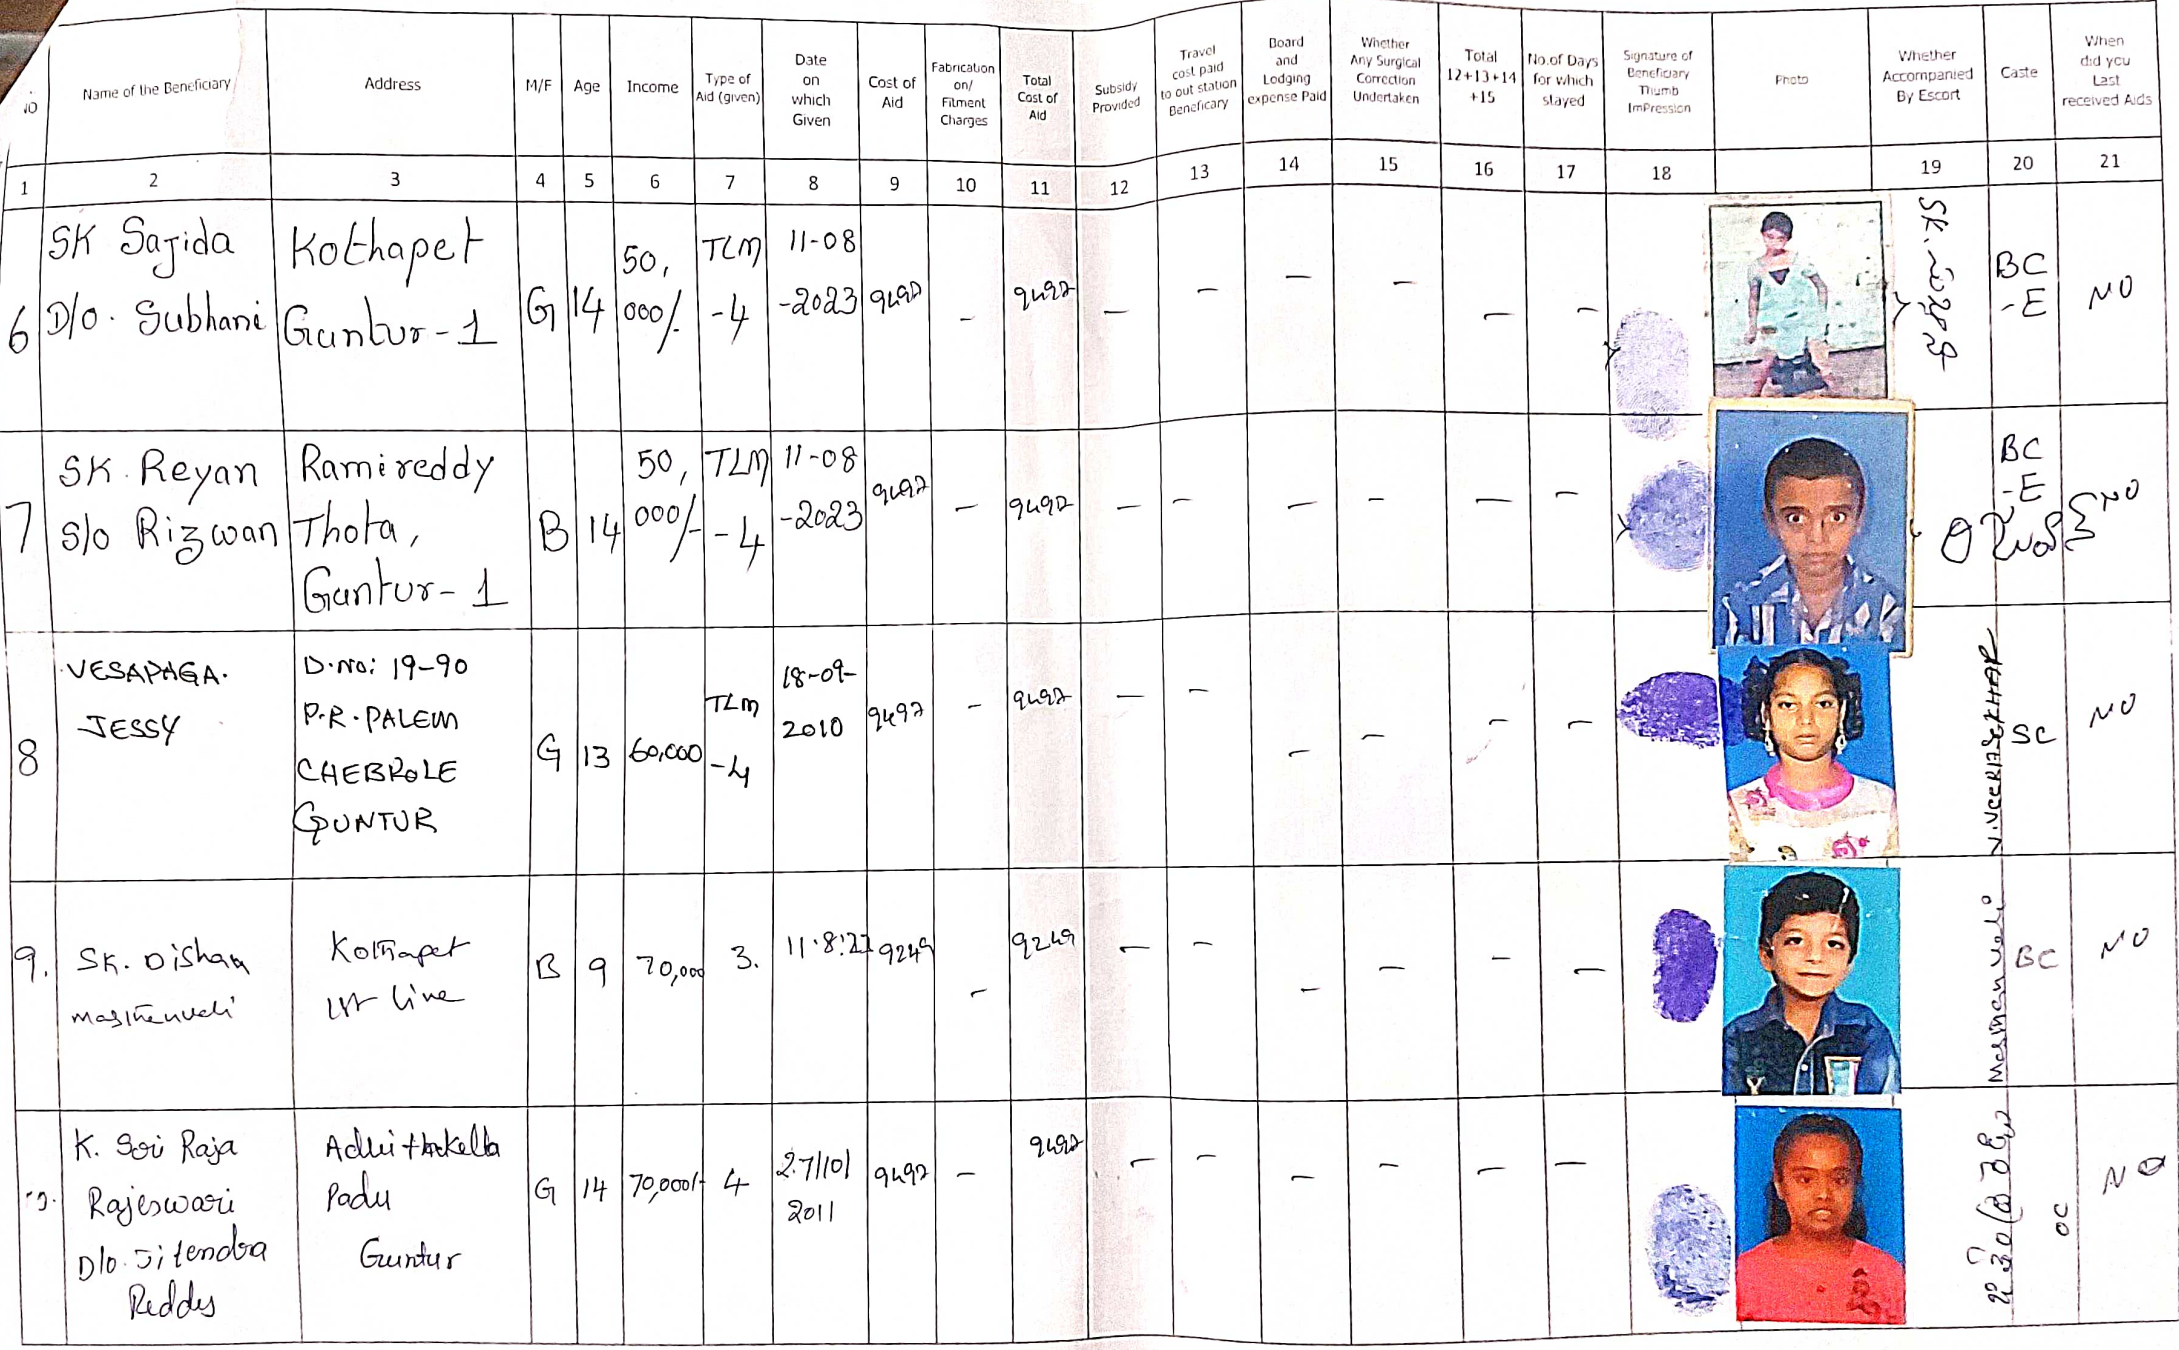 Name of the Beneficiary
Address
M/F
Age
Income
Type of
Aid (given)
Date
on
which
Given
Cost of
Aid
Fabrication
on/
Fitment
Charges
Total
Cost of
Aid
Subsidy
Provided
Travel
cost paid
to out station
Beneficary
Board
and
Lodging
expense Paid
Whether
Any Surgical
Correction
Undertaken
Total
12+13+14
+15
No.of Days
for which
stayed
Signature of
Beneficiary
Thumb
ImPression
Photo
Whether
Accompanied
By Escort
Caste
When
did you
Last
received Aids
1 2 3 4 5 6 7 8 9 10 11 12 13 14 15 16 17 18 19 20 21
6
SK Sajida
D/o. Subhani
Kothapet
Guntur-1
G
14
50,
000/-
TLM
-4
11-08
-2023
9497
-
9497
- - - - - -
BC
-E
NO
7
SK. Reyan
S/o Rizwan
Ramireddy
Thota,
Guntur-1
B
14
50,
000/-
TLM
-4
11-08
-2023
9497
-
9497
- - - - - -
BC
-E
NO
8
VESAPAGA.
JESSY
D.No: 19-90
P.R.PALEM
CHEBROLE
GUNTUR
G
13
60,000
TLM
-4
18-09-
2010
9497
-
9497
- - - - - -
V.VEERASEKHAR
SC
NO
9.
SK. Dishan
Masthanvali
Kothapet
1st line
B
9
70,000
3.
11.8.23
9249
-
9249
- - - - - -
Masthanvali
BC
NO
K. Sri Raja
Rajeswari
D/o. Jitendra
Reddy
Padu
Guntur
G
14
70,000/-
4
27/10/
2011
9497
-
9497
- - - - - -
OC
NO